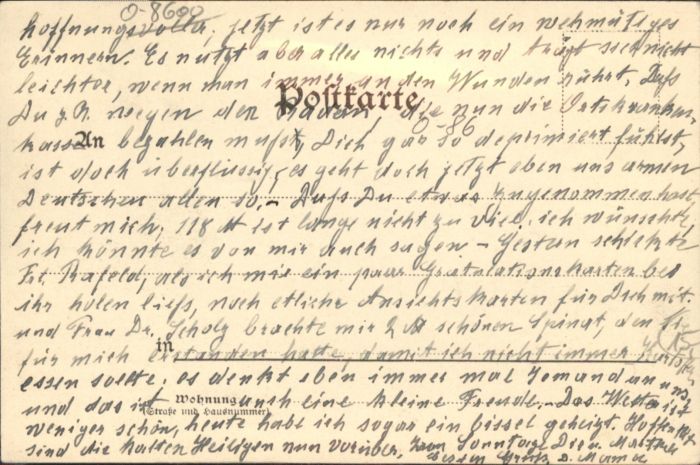 O-8600
hoffnungsvoller, jetzt ist es nur noch ein wehmütiges
Erinnern. Es nutzt aber alles nichts und trägt sich nicht
leichter, wenn man immer an den Wunden rührt. Daß
Postkarte
Du z.B. wegen der, die nun die Ortskranken-
O-86
kasse bezahlen mußt, Dich gar so deprimiert fühlst,
An
ist doch überflüssig, es geht doch jetzt eben uns armen
Deutschen allen so. - Daß Du etwas zugenommen hast
freut mich; 118 ℔ ist lange nicht zu viel, ich wünschte,
ich könnte es von mir auch sagen - Gestern schickte
Frl. Rafeld, als ich mir ein paar Gratulationskarten bei
ihr holen ließ, noch etliche Ansichtskarten für Dich mit
und Frau Dr. Scholz brachte mir 2 ℔ schönen Spinat, den sie
für mich erstanden hatte, damit ich nicht immer
in
essen sollte; es denkt eben immer mal Jemand an uns
und das ist auch eine kleine Freude. - Das Wetter ist
Wohnung
(Straße und Hausnummer)
weniger schön, heute hab ich sogar ein bissel geheizt. Hoffentlich
sind die kalten Heiligen nun vorüber. Zum Sonntage Dir u. Martha
Gruß D. Mama